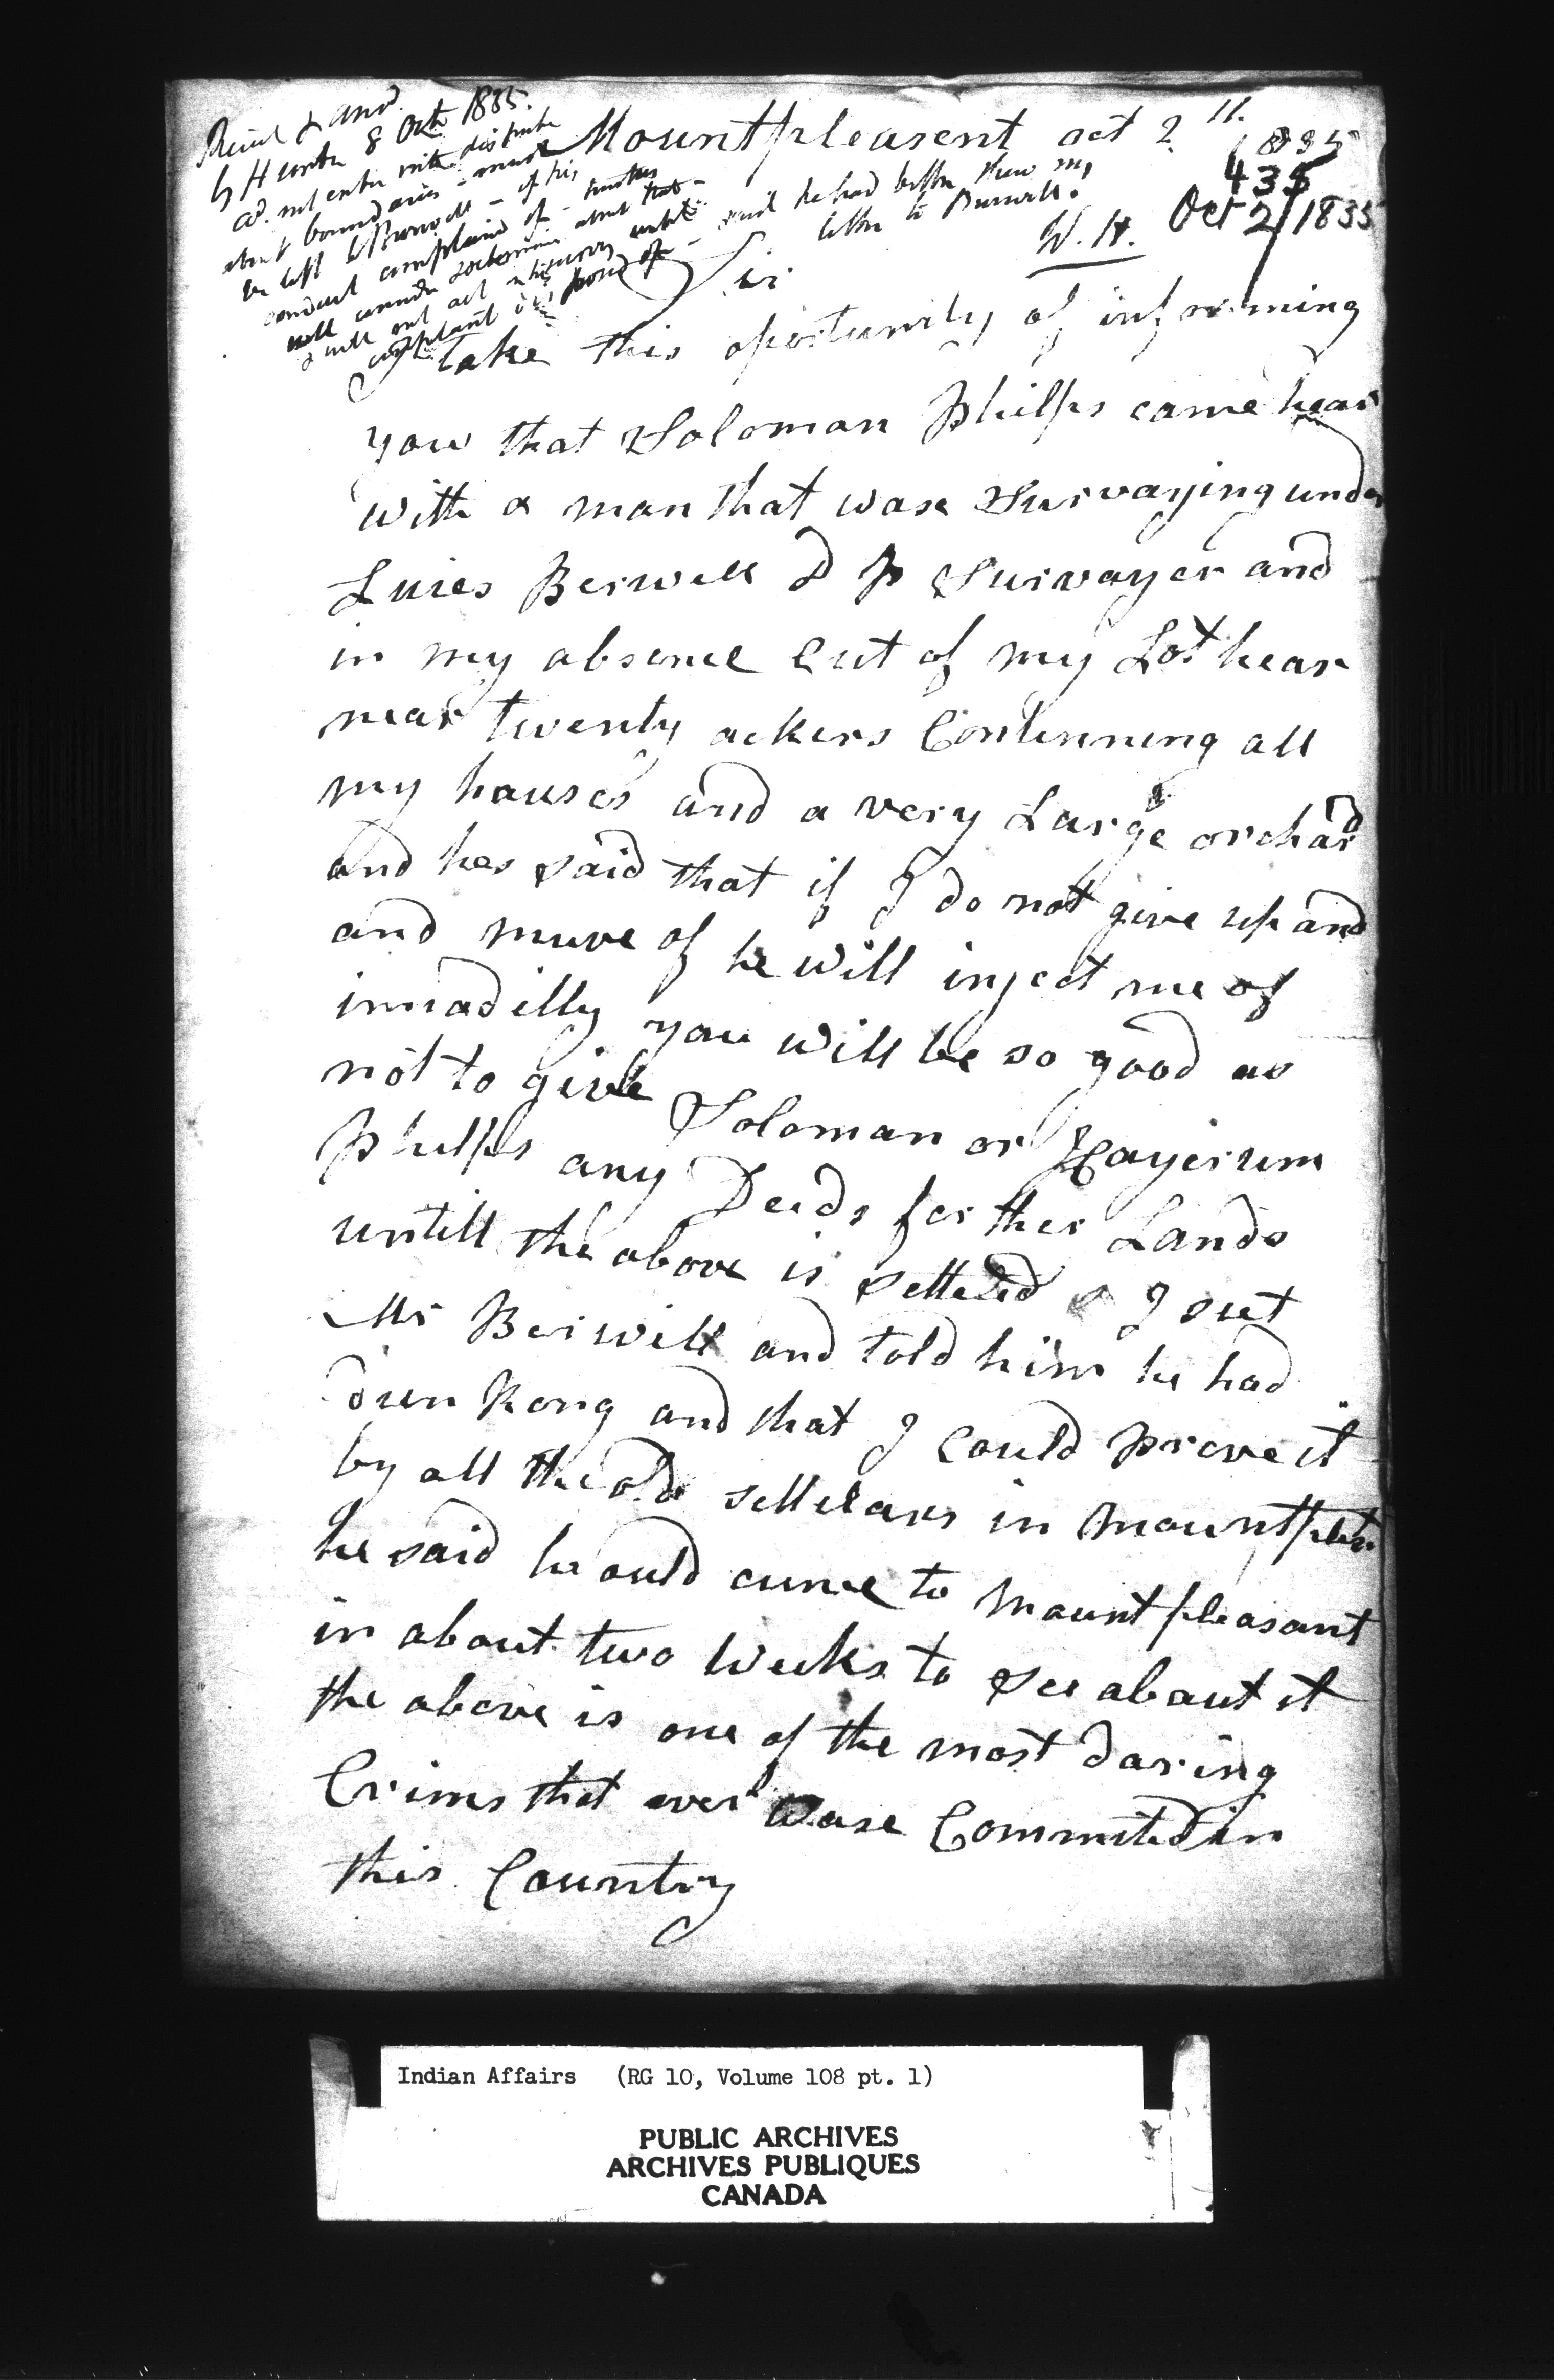 Mountpleasent oct 2 11. 1835
435
Oct 2/1835
Recd & ansd.
by H 8 Oct. 1835.
cd. not enter into dispute
about boundaries - must
be left to Burwell - of his
conduct complained of -
will about that -
& will not act until
complaint disposed of - said he had better shew my
letter to Burwell.
W. H.
Sir
I take this oportunity of informing
you that Soloman Philps came hear
with a man that wase Survaying under
Luies Berwell D P Survayer and
in my absence Cut of my Lot hear
near twenty ackers Contenning all
my houses and a very Large orchard
and hes said that if I do not give up and
and muve of he will inject me of
immadilly you will be so good as
not to give Soloman or Hayerum
Philps any Deeds for ther Lands
untill the above is setteled I
Mr Berwill and told him he had
dun Rong and that I Could prove it
by all the old settelars in Mountplest.
he said he ould cume to Mountpleasant
in about two Weeks to see about it
the above is one of the most daring
Crimes that ever wase Commited in
this Country
Indian Affairs (RG 10, Volume 108 pt. 1)
PUBLIC ARCHIVES
ARCHIVES PUBLIQUES
CANADA